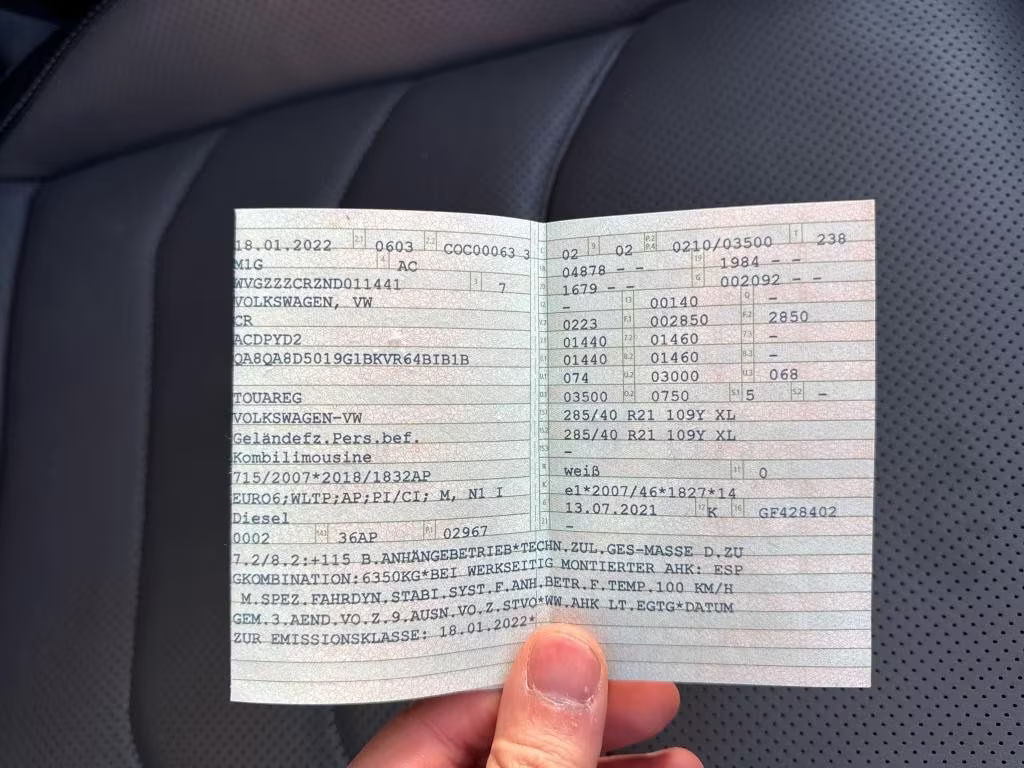 18.01.2022 2.1 0603 2.2 COC00063 3
M1G 4 AC
WVGZZZCRZND011441 3 7
VOLKSWAGEN, VW
CR
ACDPYD2
QA8QA8D5019G1BKVR64BIB1B
TOUAREG
VOLKSWAGEN-VW
Geländefz.Pers.bef.
Kombilimousine
715/2007*2018/1832AP
EURO6;WLTP;AP;PI/CI; M, N1 I
Diesel
0002 14.1 36AP P.1 02967
02 9 02 P.2 P.4 0210/03500 T 238
04878 - - 19 1984 - -
1679 - - G 002092 - -
- 13 00140 Q -
0223 F.1 002850 F.2 2850
01440 7.2 01460 7.3 -
01440 8.2 01460 8.3 -
074 U.2 03000 U.3 068
03500 O.2 0750 S.1 5 S.2 -
285/40 R21 109Y XL
285/40 R21 109Y XL
-
weiß 11 0
e1*2007/46*1827*14
13.07.2021 17 K 16 GF428402
21 -
7.2/8.2:+115 B.ANHÄNGEBETRIEB*TECHN.ZUL.GES-MASSE D.ZU
GKOMBINATION:6350KG*BEI WERKSEITIG MONTIERTER AHK: ESP
M.SPEZ.FAHRDYN.STABI.SYST.F.ANH.BETR.F.TEMP.100 KM/H
GEM.3.AEND.VO.Z.9.AUSN.VO.Z.STVO*WW.AHK LT.EGTG*DATUM
ZUR EMISSIONSKLASSE: 18.01.2022*